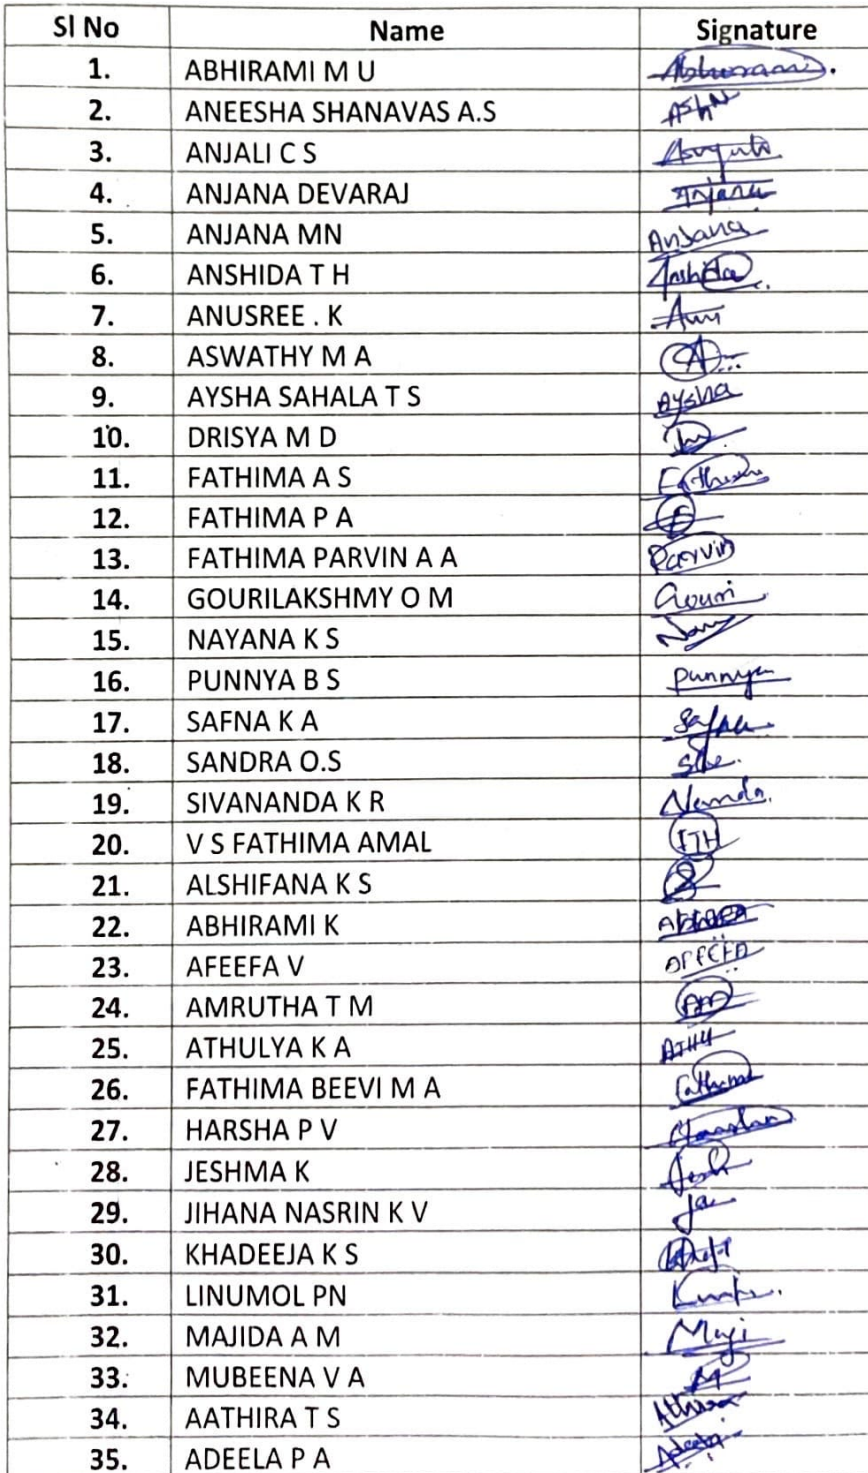 Sl No Name Signature
1. ABHIRAMI M U
2. ANEESHA SHANAVAS A.S
3. ANJALI C S
4. ANJANA DEVARAJ Anjana
5. ANJANA MN Anjana
6. ANSHIDA T H Anshida
7. ANUSREE . K
8. ASWATHY M A A
9. AYSHA SAHALA T S Aysha
10. DRISYA M D
11. FATHIMA A S
12. FATHIMA P A
13. FATHIMA PARVIN A A Parvin
14. GOURILAKSHMY O M Gouri
15. NAYANA K S
16. PUNNYA B S Punnya
17. SAFNA K A Safna
18. SANDRA O.S
19. SIVANANDA K R Nanda.
20. V S FATHIMA AMAL
21. ALSHIFANA K S
22. ABHIRAMI K
23. AFEEFA V
24. AMRUTHA T M AM
25. ATHULYA K A
26. FATHIMA BEEVI M A
27. HARSHA P V
28. JESHMA K Jesh
29. JIHANA NASRIN K V
30. KHADEEJA K S
31. LINUMOL PN
32. MAJIDA A M Maji
33. MUBEENA V A M
34. AATHIRA T S Athira
35. ADEELA P A Adeela